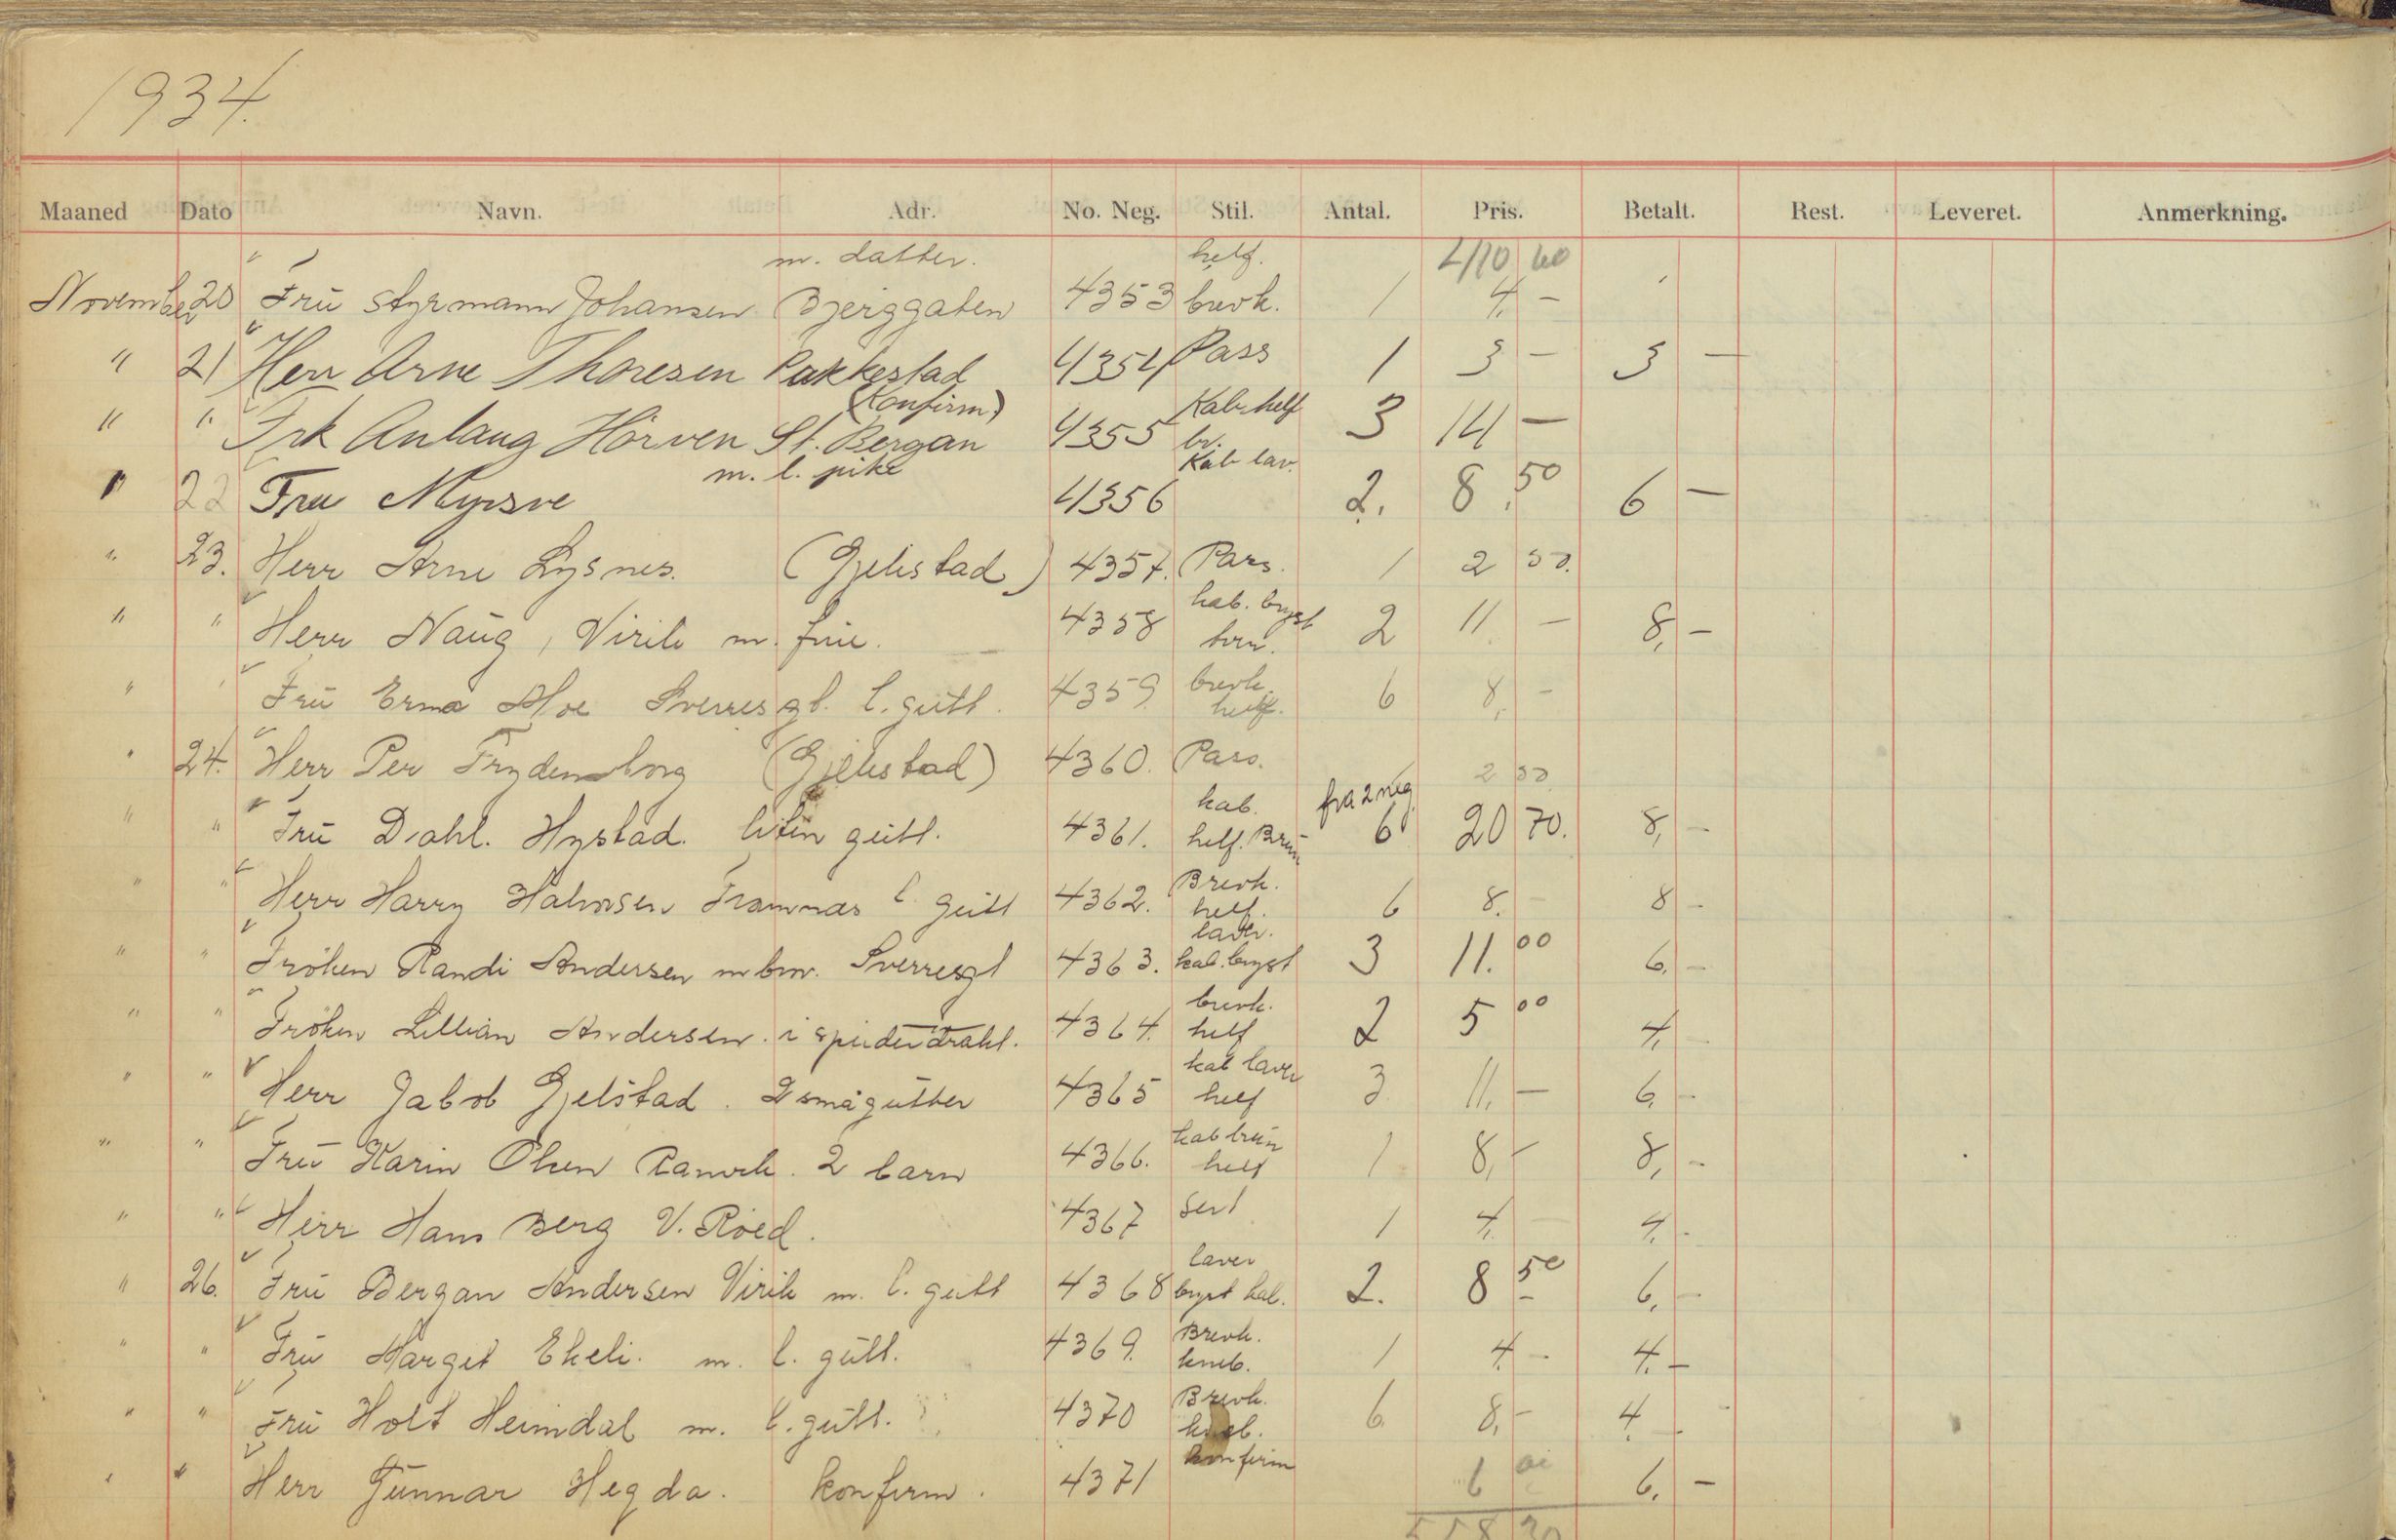 1934.
Maaned Dato Navn. Adr. No. Neg. Stil. Antal. Pris. Betalt. Rest. Leveret. Anmerkning.
m. datter. helf. 410 60
November 20 Frū Styrmann Johansen Bjerggaten 4353 brevk. 1 4,-
" 21 Herr Arne Thoresen Pakkestad 4354 Pass 1 3 - 3 -
(Konfirm) Kab helf
" " Frk Anlaug Hörven St. Bergan 4355 br. 3 14 -
m. l. pike Kab lav.
" 22 Fru Myrsve 4356 2. 8,50 6 -
" 23. Herr Arne Lysnes. (Gjelstad) 4357. Pass. 1 2 50.
" " Herr Naūg, Virik m. frūe. 4358 kab. bryst brūn. 2 11 - 8,-
" " Frū Erna Moe Sverresgt. l. gūtt. 4359 brevk. helf. 6 8,-
" 24. Herr Per Frydensborg (Gjelstad) 4360. Pass. 2 50
" " Frū Dahl. Hystad. liten gūtt. 4361. kab. helf. Brūn fra 2 neg 6 20 70. 8,-
" " Herr Harry Halvorsen Framnæs l. gūtt 4362. Brevk. helf. 6 8.- 8 -
" " Fröken Randi Andersen m bror. Sverresgt 4363. laver. kab. bryst 3 11.00 6,-
" " Fröken Lillian Andersen. i speiderdrakt. 4364. brevk. helf 2 5 00 4,
" " Herr Jakob Gjelstad. 2 smågūtter 4365 kab laver helf 3 11,- 6,-
" " Frū Karin Olsen Ramvik. 2 barn 4366. kab brūn helf 1 8,- 8,-
" " Herr Hans Berg V. Röed. 4367 Sert 1 4,- 4,-
" 26. Frū Bergan Andersen Virik m. l. gūtt 4368 laver bryst kab. 2. 8 50 6,-
" " Frū Margit Ekeli. m. l. gūtt. 4369. Brevk. kneb. 1 4,- 4,-
" " Frū Holt Heimdal m. l. gūtt. 4370 Brevk. 6 8,- 4,-
" " Herr Gūnnar Hegda. konfirm. 4371 konfirm 6 6,-
558 20